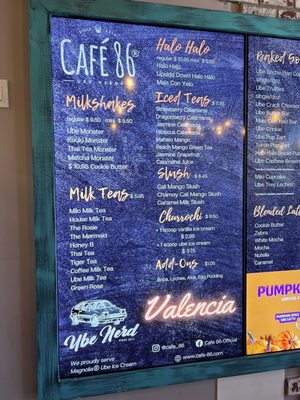 CAFÉ 86®
Milkshakes
regular $ 9.50 mini $ 8.50
Ube Monster
Kookie Monster
Thai Tea Monster
Matcha Monster
$ 10.95 Cookie Butter
Milk Teas $ 5.95
Milo Milk Tea
House Milk Tea
The Rosie
The Mermaid
Honey B
Thai Tea
Tiger Tea
Coffee Milk Tea
Ube Milk Tea
Green Rose
Ube Nerd
We proudly serve
Magnolia® Ube Ice Cream
Halo Halo
regular $ 10.95
Halo Halo
Upside Down Halo Halo
Mais Con Yelo
Iced Teas
Strawberry Calamansi
Dragonberry Calamansi
Jasmine Calamansi
Hibiscus Calamansi
Mahalo Mango
Peach Mango Green Tea
Jasmine Grapefruit
Calamansi Juice
Slush
Cali Mango Slush
Chamoy Cali Mango Slush
Caramel Milk Slush
Churrochi
+ 1 scoop vanilla ice cream
+ 1 scoop ube ice cream
Add-Ons
Boba, Lychee, Aloe, Egg Pudding
Valencia
@cafe_86
Cafe 86 Official
cafe-86.com
Baked Go
Ube Truffles
Ube Cookie
Ube Pop Tart
Turon Pop Tart
Halo Halo Bread Pud
Ube Cashew Browni
Milo Cupcake
Ube Tres Leches
Blended Latt
Cookie Butter
Zebra
White Mocha
Mocha
Nutella
Caramel
PUMPK